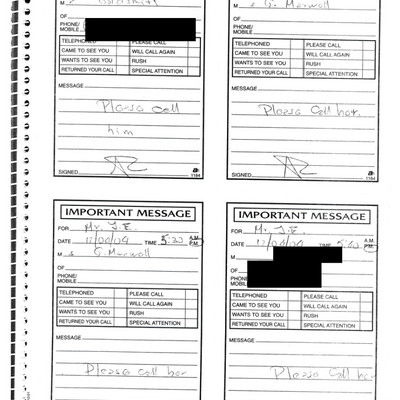 M
OF
PHONE/
MOBILE
TELEPHONED PLEASE CALL
CAME TO SEE YOU WILL CALL AGAIN
WANTS TO SEE YOU RUSH
RETURNED YOUR CALL SPECIAL ATTENTION
MESSAGE
Please call
him
SIGNED
1184
M G. Maxwell
OF
PHONE/
MOBILE
TELEPHONED PLEASE CALL
CAME TO SEE YOU WILL CALL AGAIN
WANTS TO SEE YOU RUSH
RETURNED YOUR CALL SPECIAL ATTENTION
MESSAGE
Please Call her.
SIGNED
1184
IMPORTANT MESSAGE
FOR Mr. J.E.
DATE TIME A.M. P.M.
M s G. Maxwell
OF
PHONE/
MOBILE
TELEPHONED PLEASE CALL
CAME TO SEE YOU WILL CALL AGAIN
WANTS TO SEE YOU RUSH
RETURNED YOUR CALL SPECIAL ATTENTION
MESSAGE
Please call her
IMPORTANT MESSAGE
FOR Mr. J.E.
DATE TIME A.M. P.M.
M
OF
PHONE/
MOBILE
TELEPHONED PLEASE CALL
CAME TO SEE YOU WILL CALL AGAIN
WANTS TO SEE YOU RUSH
RETURNED YOUR CALL SPECIAL ATTENTION
MESSAGE
Please Call her